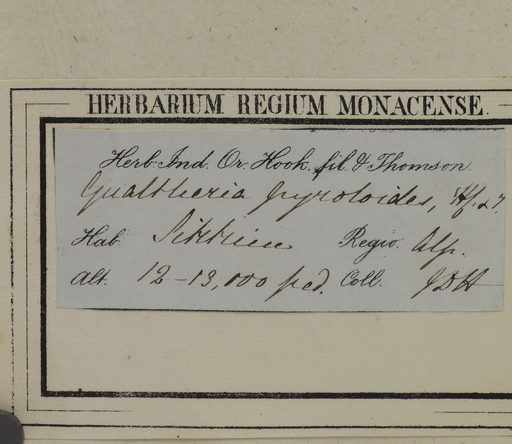 HERBARIUM REGIUM MONACENSE
Herb. Ind. Or. Hook. fil. & Thomson.
Gualtheria pyroloides, Hf. & T.
Hab. Sikkim Regio. Alp.
Alt. 12-13,000 ped. Coll. JDH